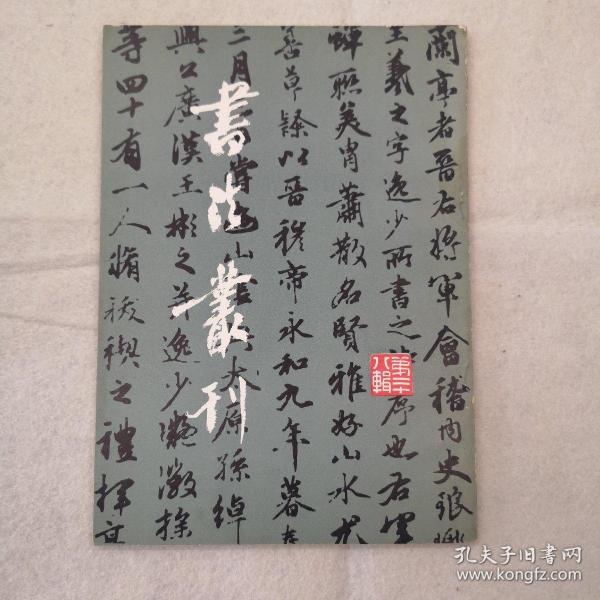 書法叢刊
蘭亭者晉右將軍會稽內史琅
王羲之字逸少所書之 序也右軍
蟬聯美胄蕭散名賢雅好山水尤
善草隸以晉穆帝永和九年暮春
三月 山 太原孫綽
興公廣漢王彬之并逸少凝徽操
等四十有一人脩祓禊之禮揮毫
第二十
八輯
孔夫子旧书网
www.kongfz.com